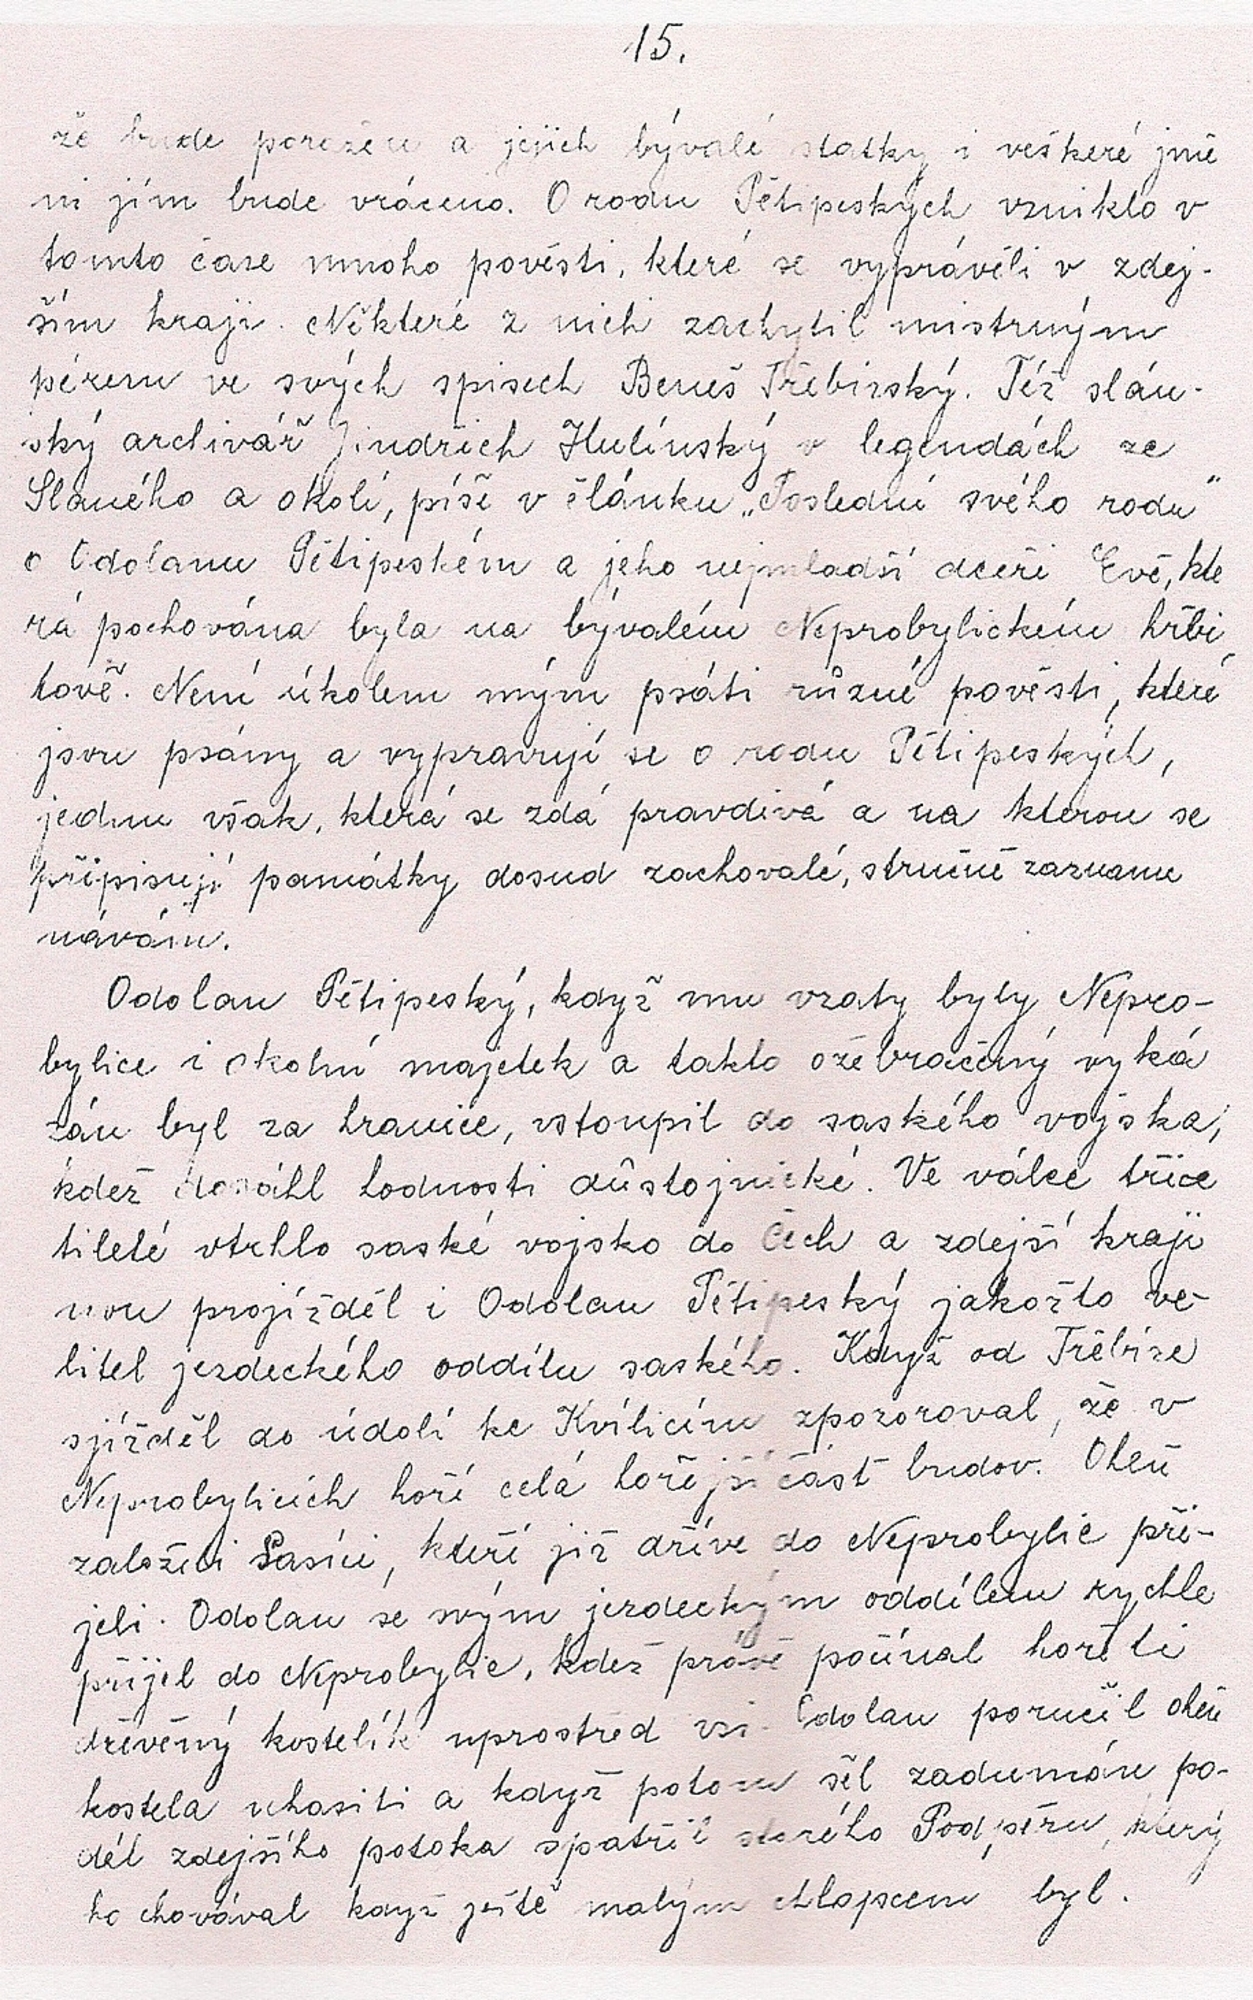 15.
že bude poražen a jejich bývalé statky i veškeré jmě
ní jím bude vráceno. O rodu Pětipeských vzniklo v
tomto čase mnoho pověstí, které se vyprávěli v zdej-
ším kraji. Některé z nich zachytil mistrným
pérem ve svých spisech Beneš Třebízský. Též slán-
ský archivář Jindřich Hulínský v legendách ze
Slaného a okolí, píše v článku „Poslední svého rodu"
o Odolanu Pětipeském a jeho nejmladší dceři Evě, kte
rá pochována byla na bývalém Neprobylickém hřbi
tově. Není úkolem mým psáti různé pověsti, které
jsou psány a vypravují se o rodu Pětipeských,
jednu však, která se zdá pravdivá a na kterou se
připisují památky dosud zachovalé, stručně zazname
návám.
Odolan Pětipeský, když mu vzaty byly Nepro-
bylice i okolní majetek a takto ožebračený vyká
zán byl za hranice, vstoupil do saského vojska,
kdež dosáhl hodnosti důstojnické. Ve válce třice
tileté vtrhlo saské vojsko do Čech a zdejší kraji
nou projížděl i Odolan Pětipeský jakožto ve-
litel jezdeckého oddílu saského. Když od Třebíze
sjížděl do údolí ke Kvílicím zpozoroval, že v
Neprobylicích hoří celá hořejší část budov. Oheň
založili Sasíci, kteří již dříve do Neprobylic při-
jeli. Odolan se svým jezdeckým oddílem rychle
přijel do Neprobylic, kdež právě počínal hořeti
dřevěný kostelík uprostřed vsi. Odolan poručil oheň
kostela uhasiti a když potom šel zadumán po-
dél zdejšího potoka spatřil starého Podpěru, který
ho chovával když ještě malým chlapcem byl.